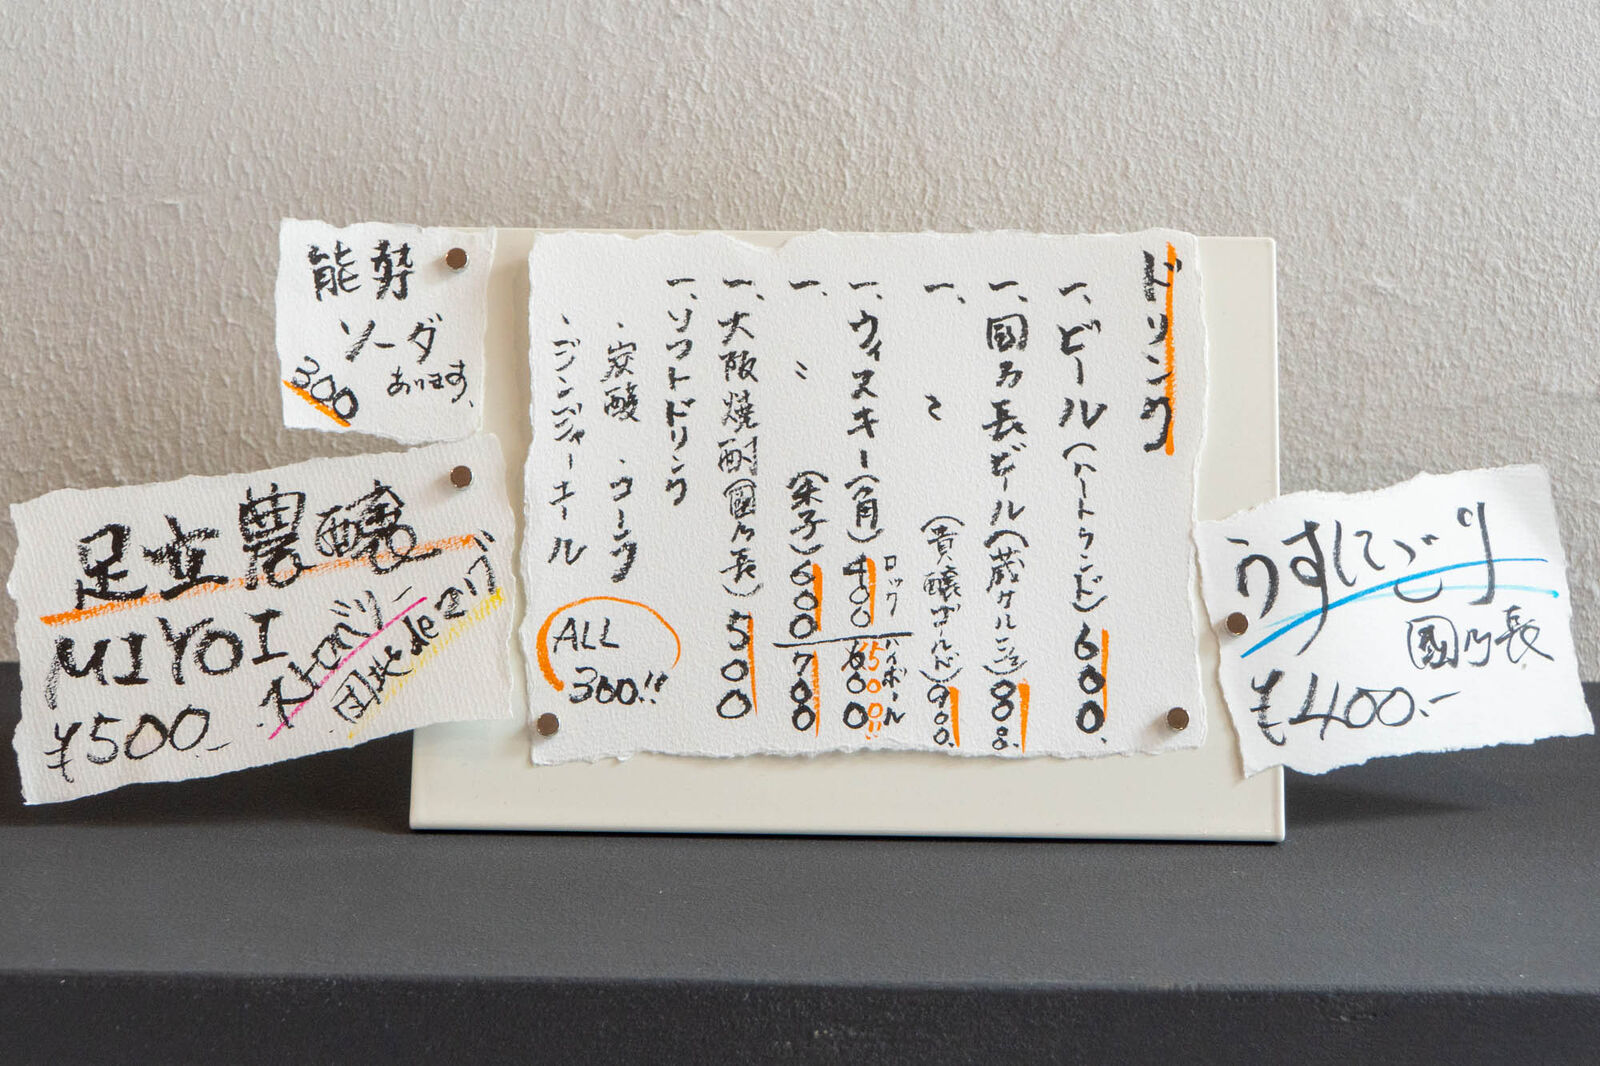 能勢
ソーダ
あります。
300
足立農醸
MIYOI
¥500.-
ストロベリー
団地 de
ドリンク
一、ビール(ハートランド)600.
一、國乃長ビール(蔵ケルシュ)800.
一、〃(貴醸ゴールド)900.
一、ウィスキー(角)
ロック
400
ハイボール
600
500!!
一、〃(余市)600
700
一、大阪焼酎(國乃長)500
一、ソフトドリンク
・炭酸 ・コーク
・ジンジャーエール
ALL
300!!
うすにごり
國乃長
¥400.-